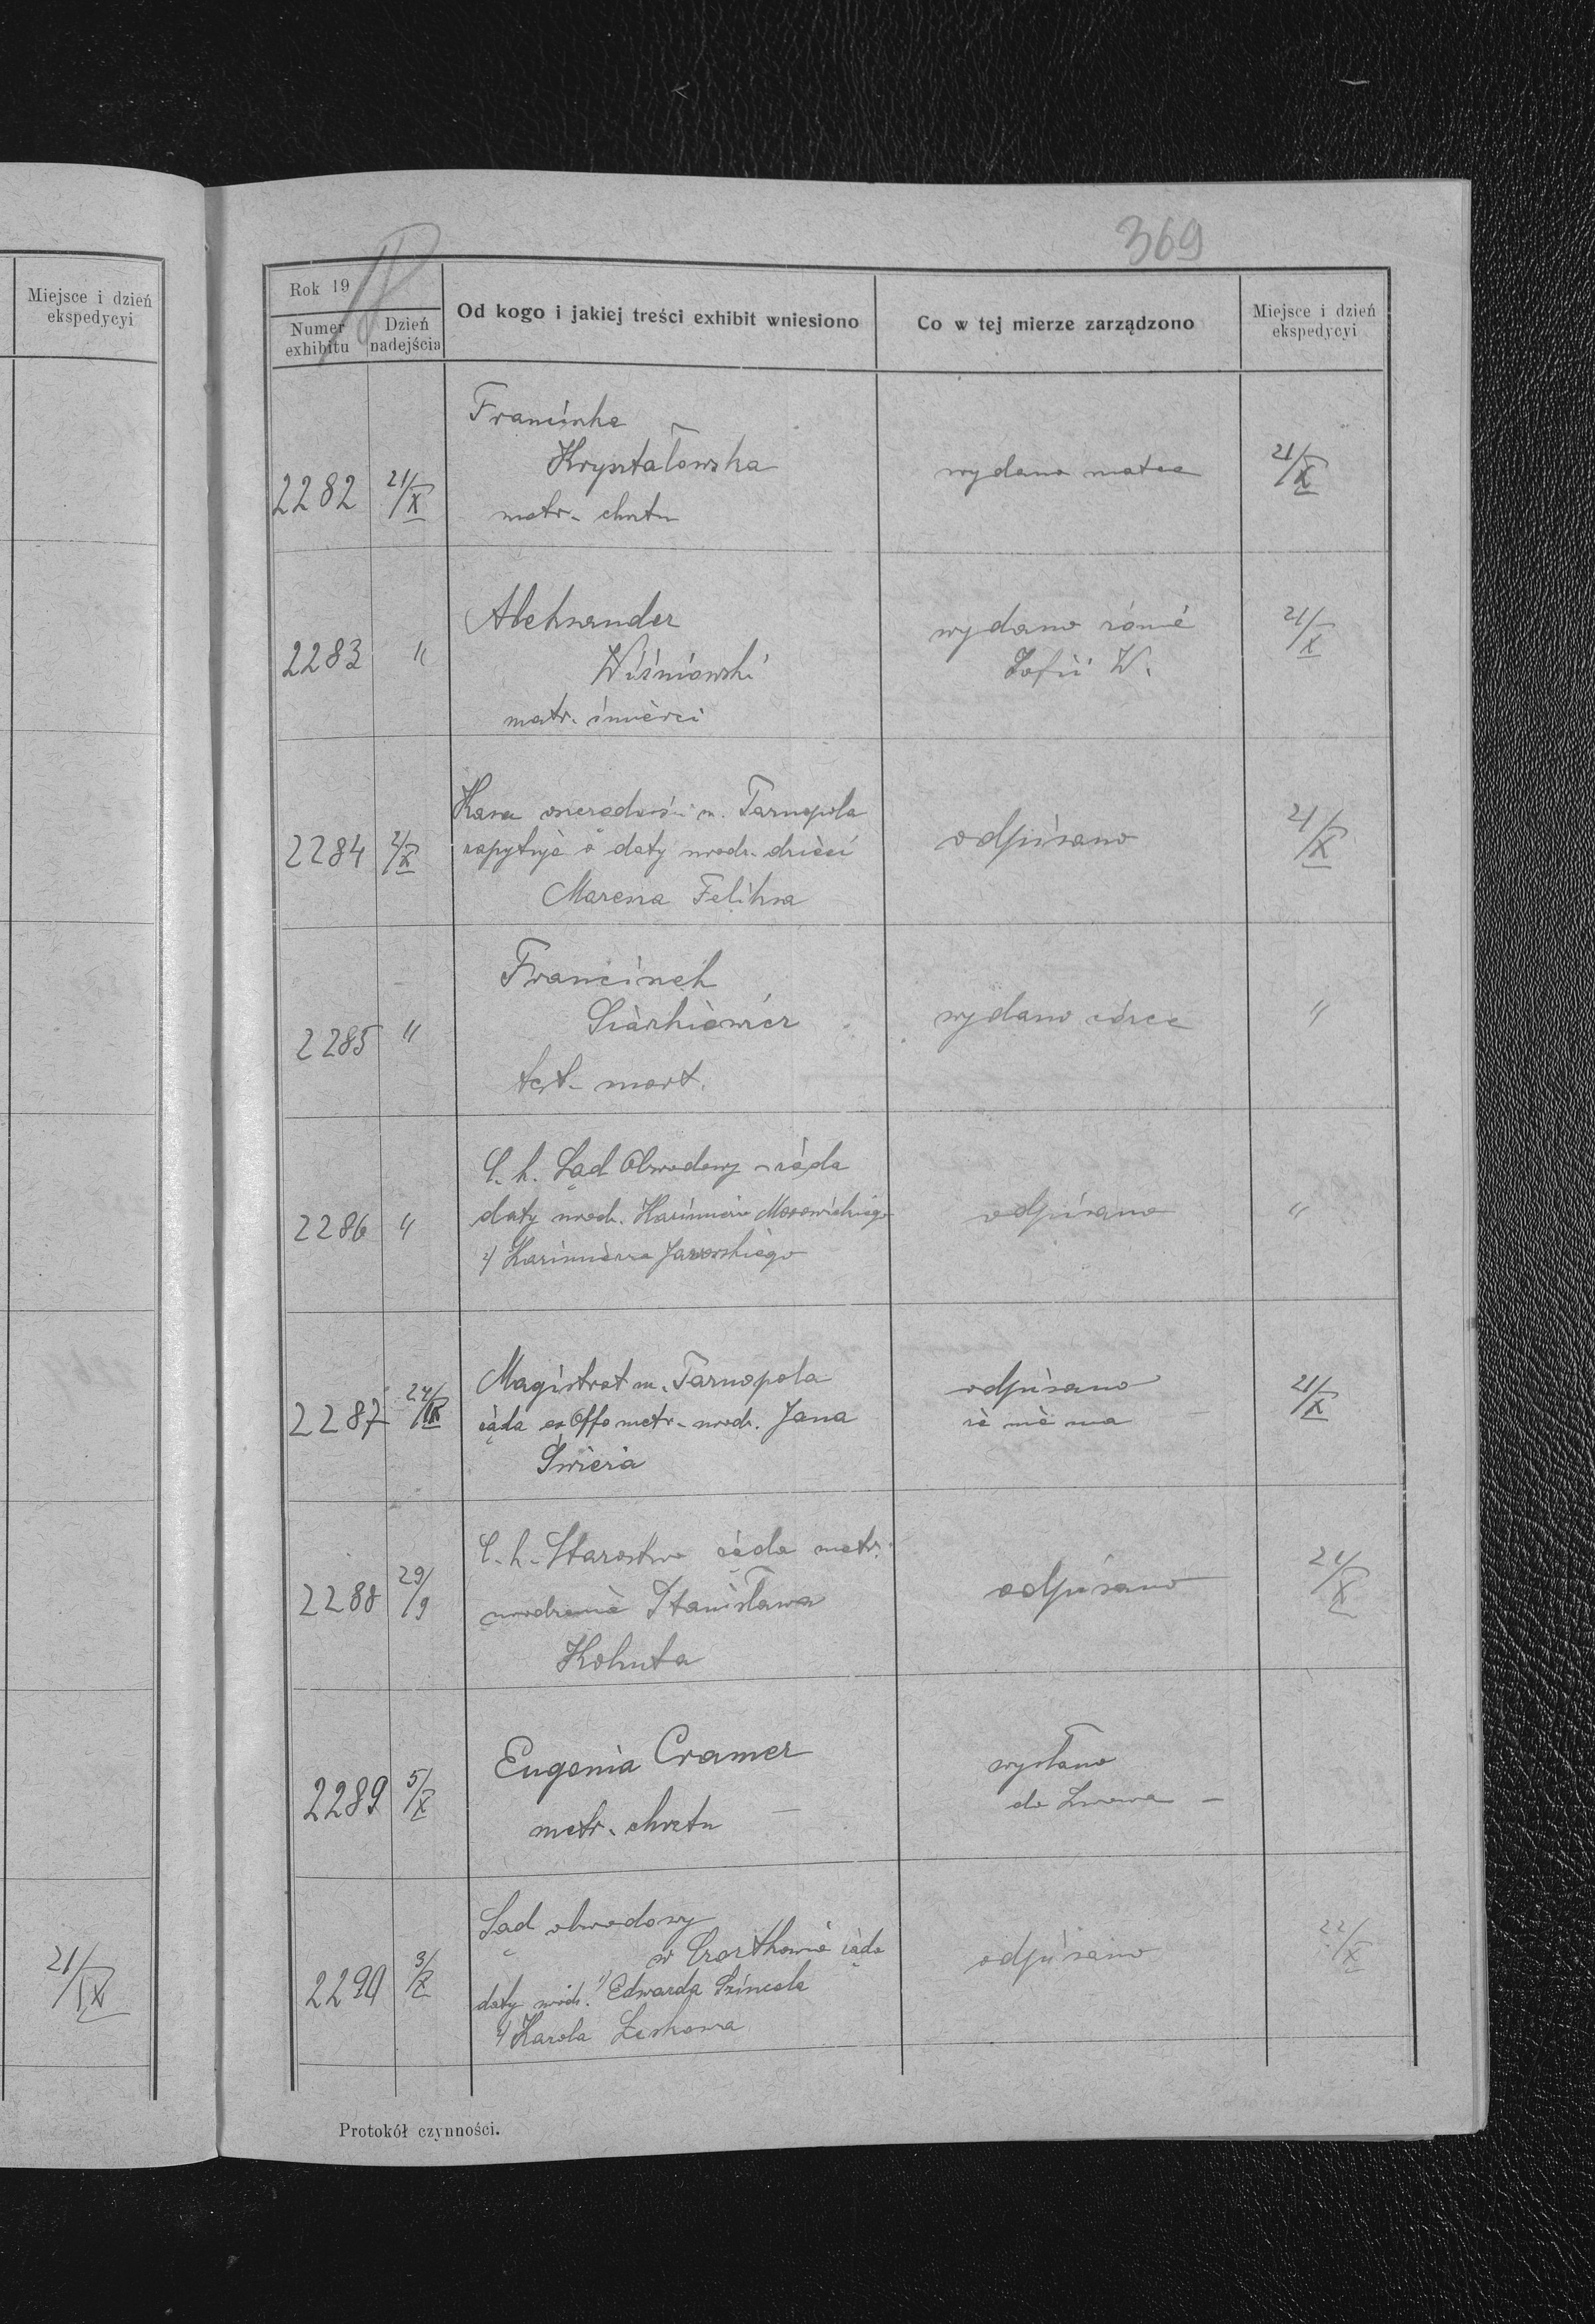 Miejsce i dzień
ekspedycyi
21/IX
369
Rok 1918
Numer
exhibitu
Dzień
nadejścia
Od kogo i jakiej treści exhibit wniesiono
Co w tej mierze zarządzono
Miejsce i dzień
ekspedycyi
Franciszka
Kryształowska
2282 21/X wydano matce 21/X
metr. chrztu
Aleksander
wydano żonie 21/X
2283 " Wiśniowski
Zofii W.
matr. śmierci
Kasa oszczędności m. Tarnopola
2284 2/X zapytuje o daty urodz. dzieci odpisano 21/X
Feliksa
Franciszek
2285 " wydano córce "
test. mort.
C. k. Sąd Obwodowy żąda
2286 " daty urodz. Kazimierza odpisano "
2) Kazimierza Jaworskiego
Magistrat m. Tarnopola
2287 24/IX żąda ex Offo metr. urodz. Jana odpisano 21/X
że nie ma
C. k. Starostwo żąda metr.
2288 29/9 urodzenia Stanisława odpisano 21/X
Kohuta
Eugenia Cramer wysłano
2289 5/X do Lwowa –
metr. chrztu
Sąd obwodowy
w Czortkowie żąda
2290 9/X daty urodz. 1) Edwarda odpisano 22/X
2) Karola
Protokół czynności.